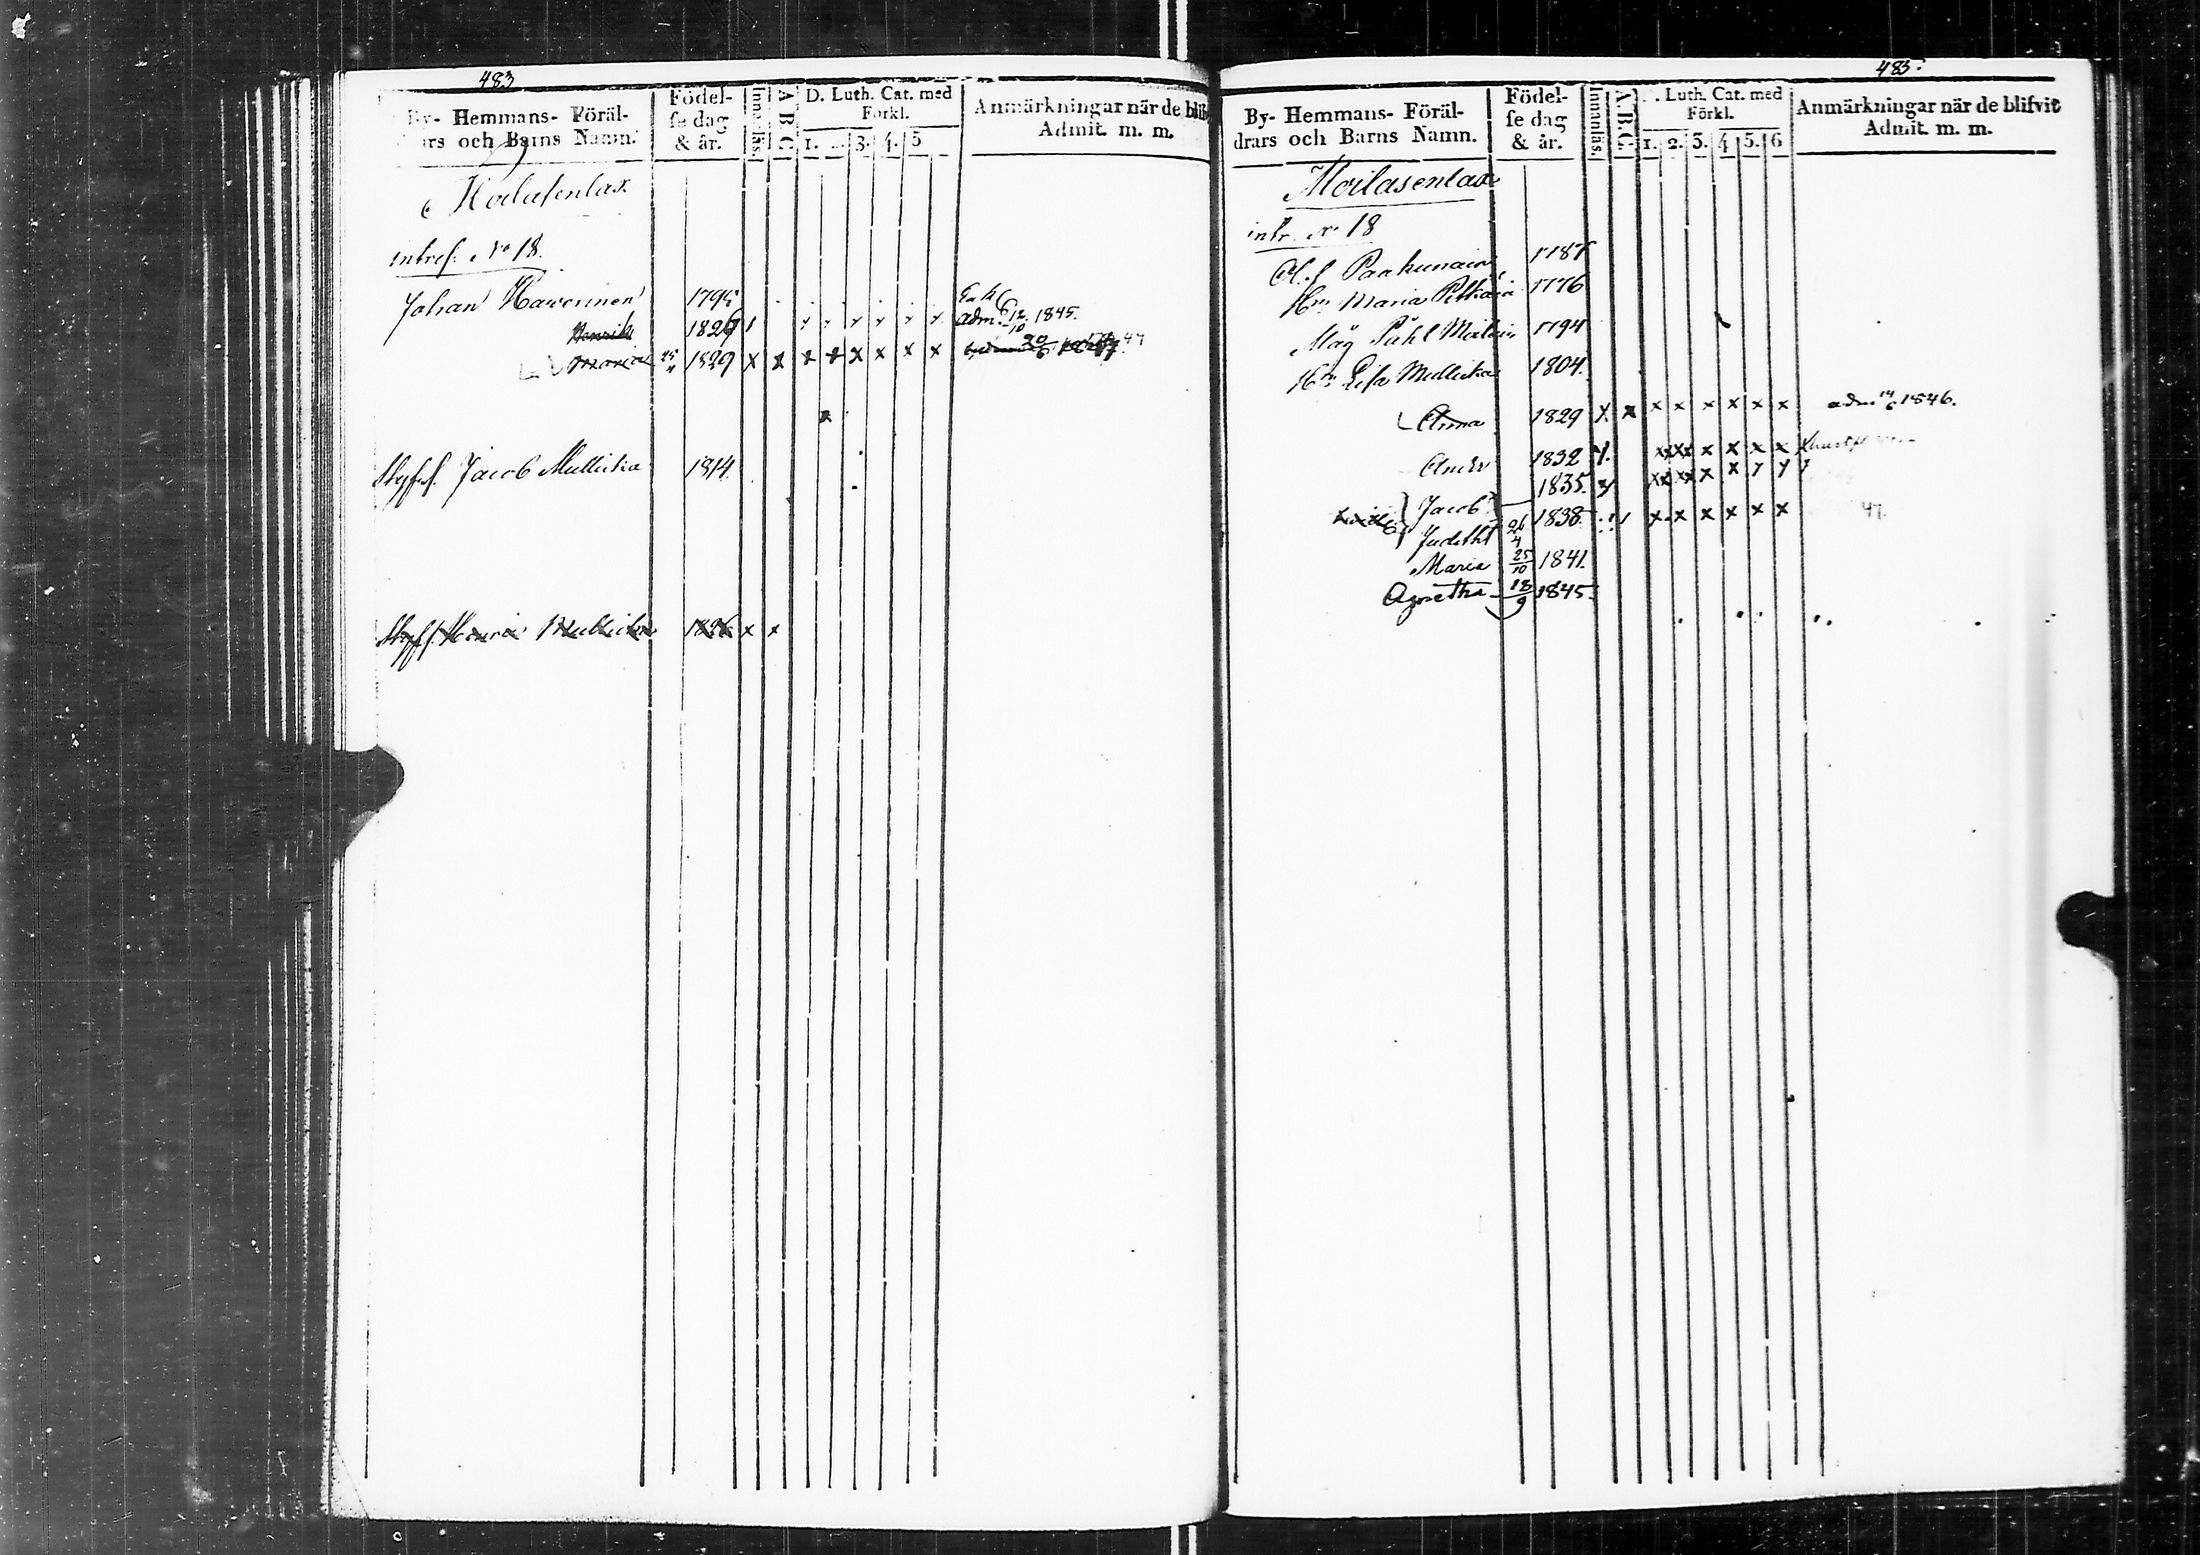 483
By- Hemmans- Föräl-
drars och Barns Namn.
Födel-
se dag
& år.
Innanläs.
A.B.C.
D. Luth. Cat. med
Förkl.
1. 3. 4. 5
Anmärkningar när de blif
Admit. m. m.
Moilasenlax
intres. No 18.
Johan Hawerinen 1795 Enk
Henrik 1826 adm. 12/10 1845.
Maria 25 1829 x x x x x x x x x 47
x
Styfs. Jacob Mullicka 1814
Styfs. Henric Mullicka 1826 x x
483.
By- Hemmans- Föräl-
drars och Barns Namn.
Födel-
se dag
& år.
Innanläs.
A.B.C.
Luth. Cat. med
Förkl.
1. 2. 3. 4 5. 6
Anmärkningar när de blifvit
Admit. m. m.
Moilasenlax
intr. No 18
Ol.s Paakunain 1787
Hu Maria Pitkäin 1776
Måg Påhl Moilain 1794
Hu Lisa Mullicka 1804.
Anna 1829 x x x x x x x x adm 14/6 1846.
Anders 1832
1835.
Jacob 1838 x x x x x x 47.
Judith 26/4
Maria 25/10 1841.
Agnetha 18/9 1845.